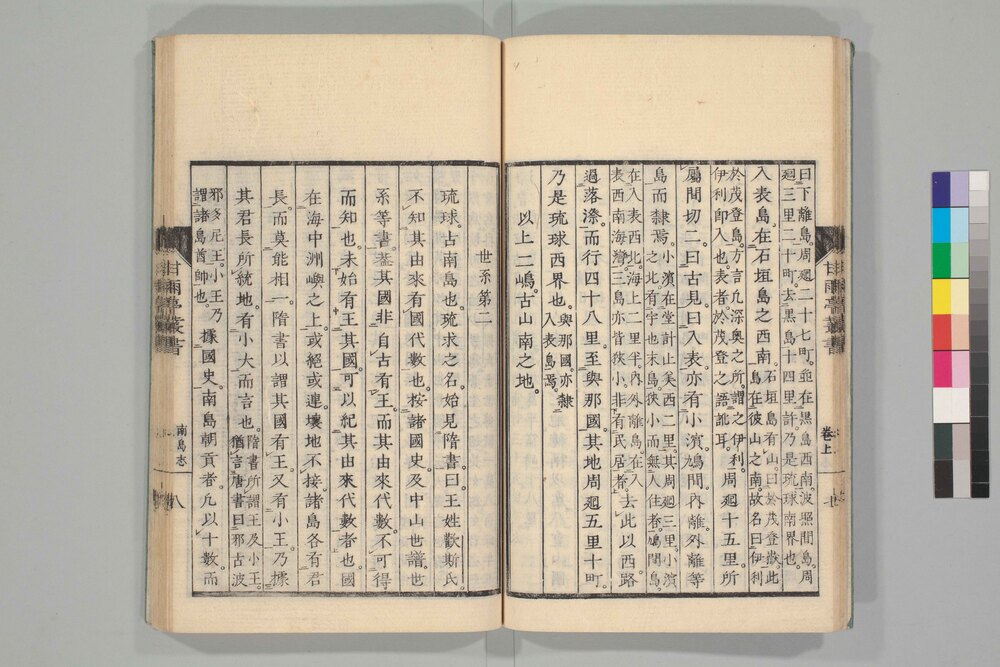 曰下離島。周廻二十七町。並在黒島西南。波照間島。周
廻三里二十町。去黒島十四里許。乃是琉球南界也。
入表島。在石垣島之西南。石垣島有山。曰於茂登嶽。此
島在彼山之南。故名曰伊利
於茂登島。方言凡深奥之所。謂之伊利。
伊利即入也。表者。於茂登之語訛耳。周廻十五里。所
屬間切二。曰古見。曰入表。亦有小濱。鳩間。内離。外離等
島而隷焉。小濱在堂計止美西二里。其周廻三里。小濱
之北有宇也末島。狹小而無人住者。鳩間島。
在入表西北海上二里半。内外離島。在入
表西南海灣。三島亦皆狹小。非有民居者。去此以西。路
過落漈。而行四十八里。至與那國。其地周廻五里十町。
乃是琉球西界也。與那國。亦隷
入表島焉。
以上二嶋。古山南之地。
甘雨亭叢書
卷上
世系第二
琉球。古南島也。琉求之名。始見隋書。曰王姓歡斯氏。
不知其由來有國代數也。按諸國史。及中山世譜。世
系等書。葢其國非自古有王。而其由來代數。不可得
而知也。未始有王其國。可以紀其由來代數者也。國
在海中洲嶼之上。或絕或連。壤地不接。諸島各有君
長。而莫能相一。隋書以謂其國有王。又有小王。乃據
其君長所統地。有小大而言也。隋書所謂王及小王。
猶言唐書曰邪古波
邪多尼王。小王乃
謂諸島酋帥也。據國史。南島朝貢者。凡以十數。而
甘雨亭叢書
南島志
八